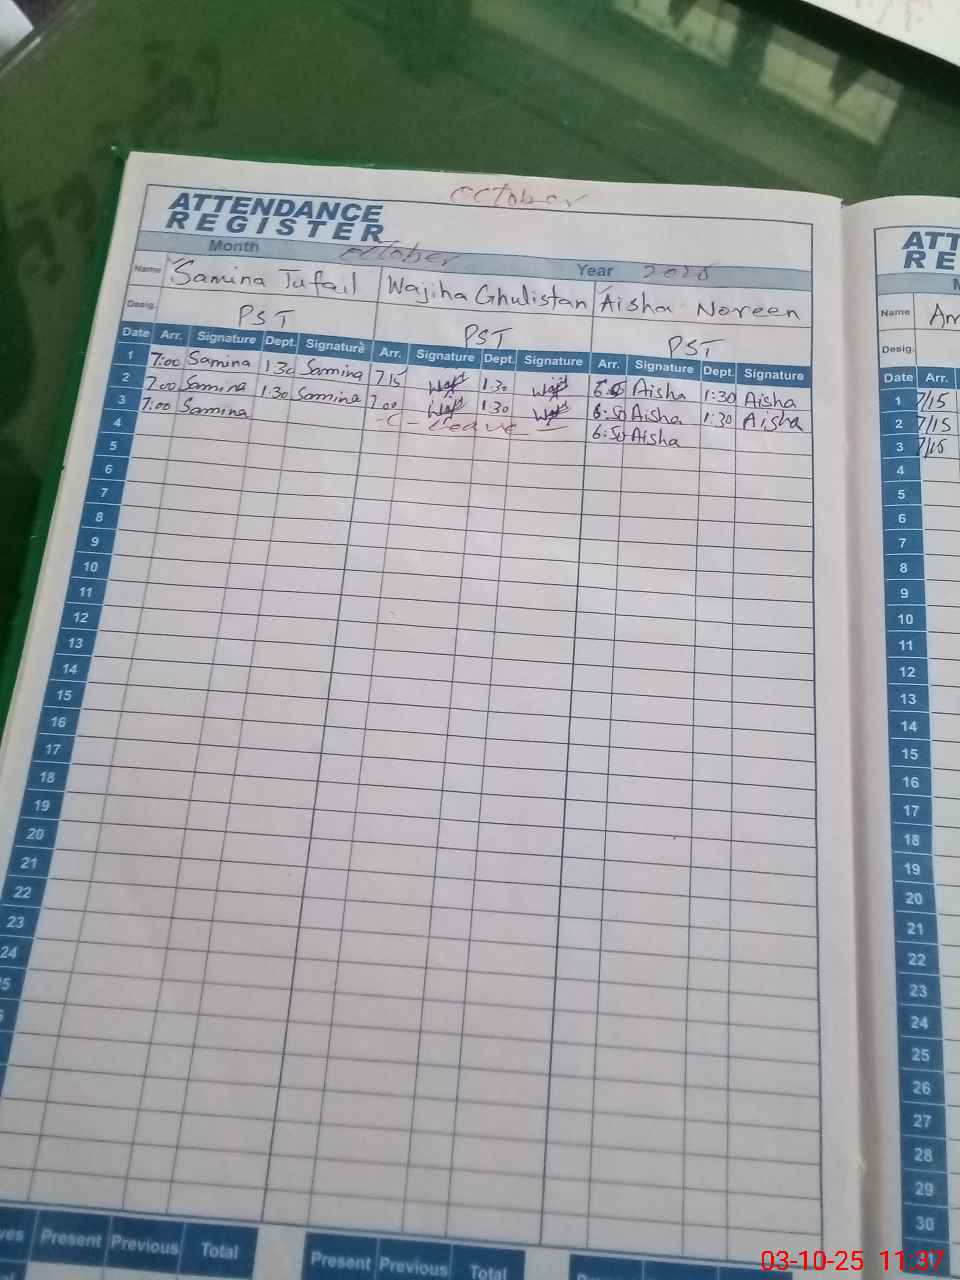 october
ATTENDANCE
REGISTER
Month october Year
Name Samina Tufail Wajiha Ghulistan Aisha Noreen
Desig. PST PST PST
Date Arr. Signature Dept. Signature Arr. Signature Dept. Signature Arr. Signature Dept. Signature
1 7:00 Samina 1:30 Samina 7:15 1:30 Aisha 1:30 Aisha
2 7:00 Samina 1:30 Samina 7:00 1:30 6:50 Aisha 1:30 Aisha
3 7:00 Samina -C-Leave- 6:50 Aisha
4
5
6
7
8
9
10
11
12
13
14
15
16
17
18
19
20
21
22
23
24
Present Previous Total Present Previous Total
ATT
RE
Name Am
Desig.
Date Arr.
1 7/15
2 7/15
3 7/15
4
5
6
7
8
9
10
11
12
13
14
15
16
17
18
19
20
21
22
23
24
25
26
27
28
29
30
03-10-25 11:37